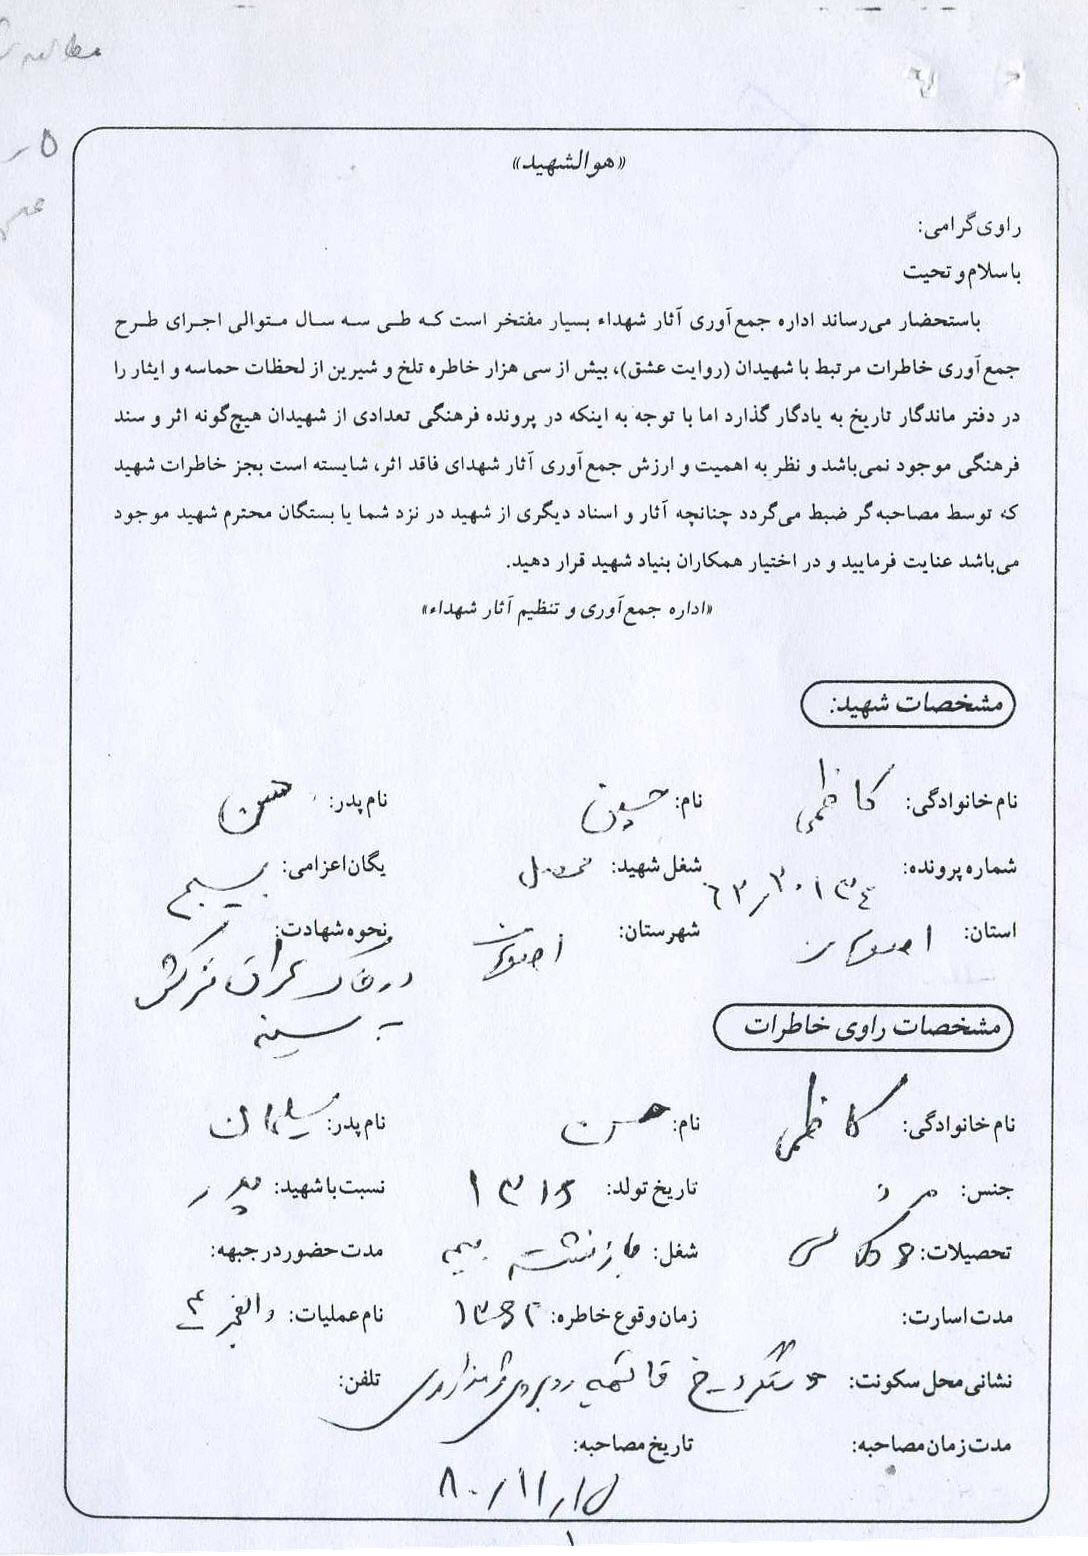 «هوالشهید»
راوی گرامی:
با سلام و تحیت
باستحضار می‌رساند اداره جمع‌آوری آثار شهداء بسیار مفتخر است که طی سه سال متوالی اجرای طرح
جمع‌آوری خاطرات مرتبط با شهیدان (روایت عشق)، بیش از سی هزار خاطره تلخ و شیرین از لحظات حماسه و ایثار را
در دفتر ماندگار تاریخ به یادگار گذارد اما با توجه به اینکه در پرونده فرهنگی تعدادی از شهیدان هیچ‌گونه اثر و سند
فرهنگی موجود نمی‌باشد و نظر به اهمیت و ارزش جمع‌آوری آثار شهدای فاقد اثر، شایسته است بجز خاطرات شهید
که توسط مصاحبه‌گر ضبط می‌گردد چنانچه آثار و اسناد دیگری از شهید در نزد شما یا بستگان محترم شهید موجود
می‌باشد عنایت فرمایید و در اختیار همکاران بنیاد شهید قرار دهید.
«اداره جمع‌آوری و تنظیم آثار شهداء»
مشخصات شهید:
نام خانوادگی: کاظمی نام: حسین نام پدر: حسن
شماره پرونده: شغل شهید: محصل یگان اعزامی: بسیج
استان: اصفهان شهرستان: اصفهان نحوه شهادت:
ترکش
به سینه
مشخصات راوی خاطرات
نام خانوادگی: کاظمی نام: حسن نام پدر: سلیمان
جنس: مرد تاریخ تولد: ۱۳۱۶ نسبت با شهید: پدر
تحصیلات: ۶ کلاس شغل: بازنشسته بیمه مدت حضور در جبهه:
مدت اسارت: زمان وقوع خاطره: ۱۳۶۲ نام عملیات: والفجر ۴
نشانی محل سکونت: خ قائمیه روبروی تلفن:
مدت زمان مصاحبه: تاریخ مصاحبه:
۸۰/۱۱/۱۵
۱